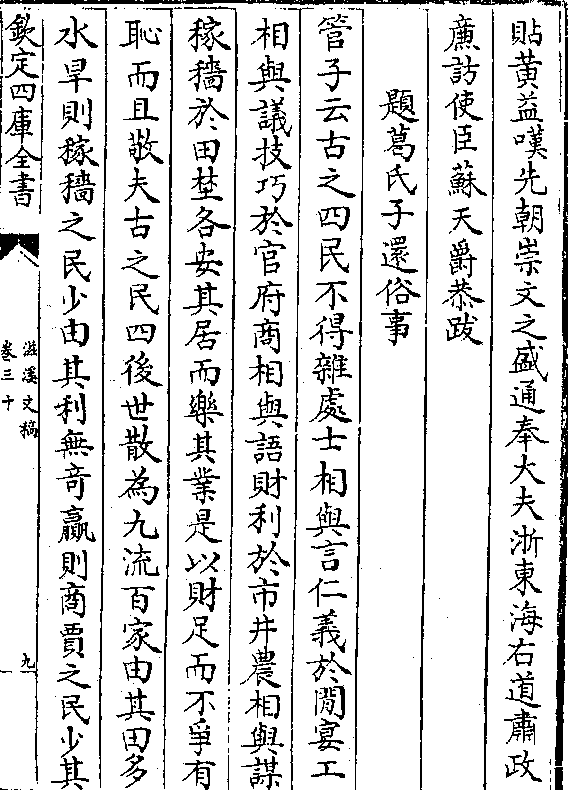 貼黄益嘆先朝崇文之盛通奉大夫浙東海右道肅政
亷訪使臣蘇天爵恭跋
題葛氏子還俗事
管子云古之四民不得雜處士相與言仁義於閒宴工
相與議技巧於官府商相與語財利於市井農相與謀
稼穡於田埜各安其居而樂其業是以財足而不爭有
恥而且敬夫古之民四後世散為九流百家由其田多
水旱則稼穡之民少由其利無竒贏則商賈之民少其
欽定四庫全書
滋溪文稿
卷三十
九